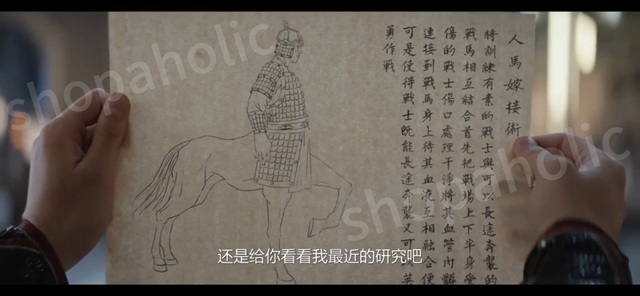 shopaholic
人馬嫁接術
將訓練有素的戰士與可以長途奔襲的
戰馬相互結合首先把戰場上下半身受
傷的戰士傷口處理干淨將其血管內髒
連接到戰馬身上待其血液互相融合便
可是使得戰士既能長途奔襲又可以英
勇作戰
shopaholic
还是给你看看我最近的研究吧